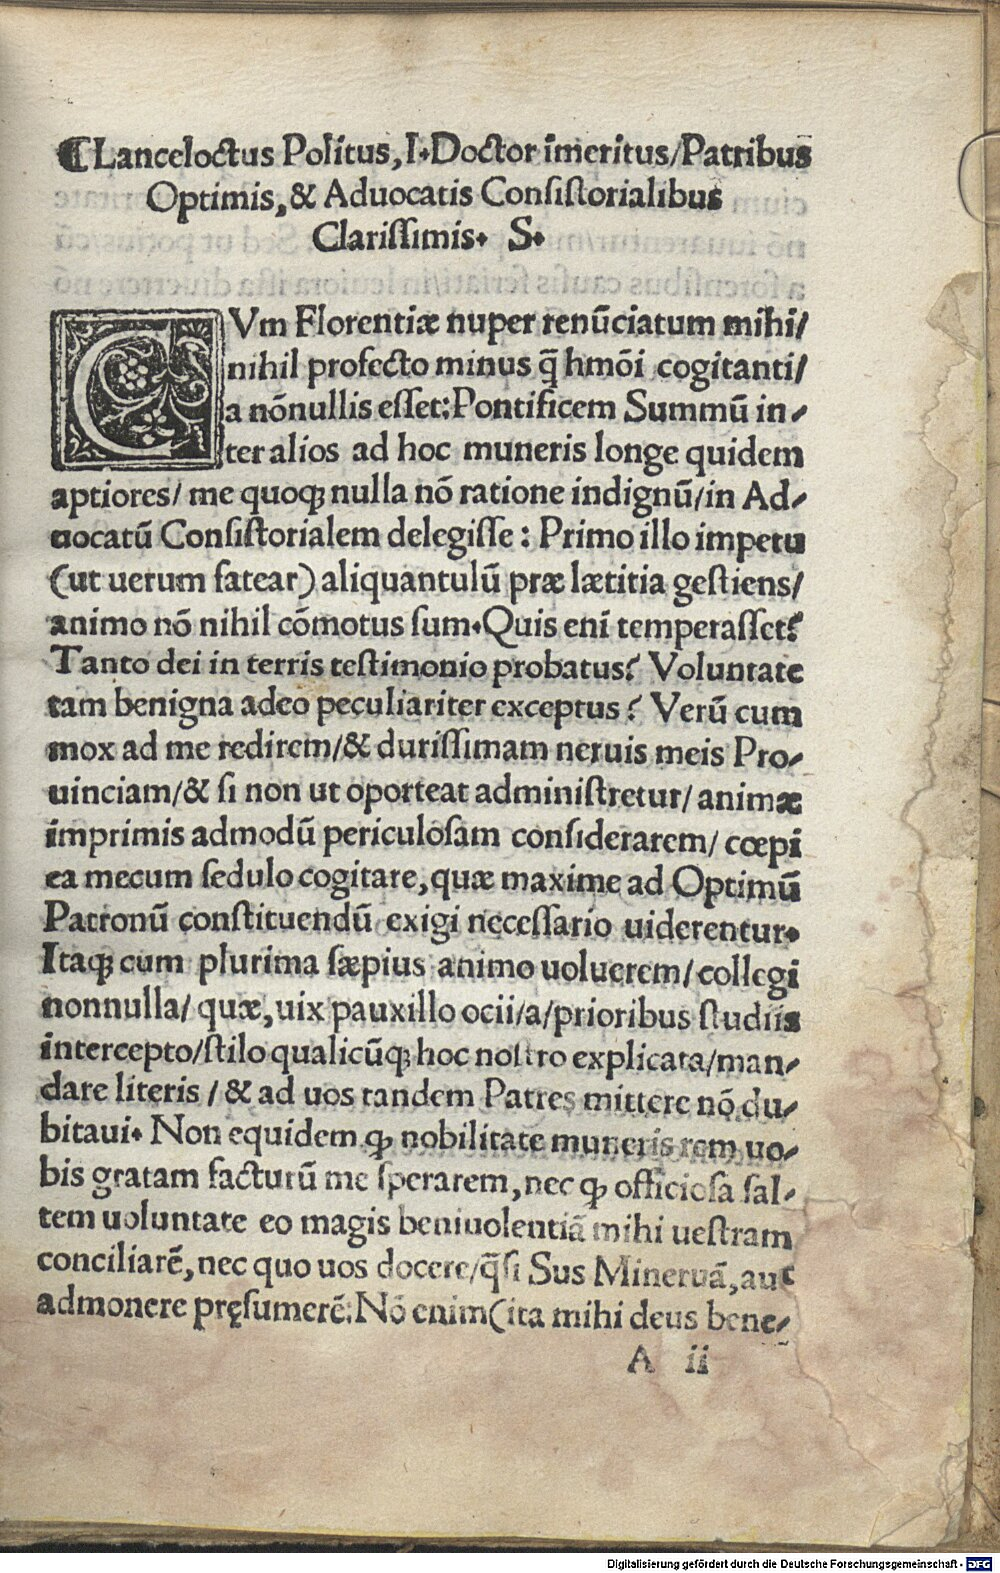 ¶Lanceloctus Politus, I. Doctor īmeritus/Patribus
Optimis, & Aduocatis Consistorialibus
Clarissimis. S.
CVm Florentiæ nuper renūciatum mihi/
nihil profecto minus q̄ hmōi cogitanti/
a nōnullis esset: Pontificem Summū in-
ter alios ad hoc muneris longe quidem
aptiores/ me quoqꝫ nulla nō ratione indignū/in Ad-
uocatū Consistorialem delegisse : Primo illo impetu
(ut uerum fatear) aliquantulū præ lætitia gestiens/
animo nō nihil cōmotus sum. Quis eni temperasset?
Tanto dei in terris testimonio probatus? Voluntate
tam benigna adeo peculiariter exceptus? Verū cum
mox ad me redirem/& durissimam neruis meis Pro-
uinciam/& si non ut oporteat administretur/ animæ
imprimis admodū periculosam considerarem/ cœpi
ea mecum sedulo cogitare, quæ maxime ad Optimū
Patronū constituendū exigi necessario uiderentur.
Itaqꝫ cum plurima sæpius animo uoluerem/ collegi
nonnulla/ quæ, uix pauxillo ocii/a/prioribus studiis
intercepto/stilo qualicūqꝫ hoc nostro explicata/man-
dare literis / & ad uos tandem Patres mittere nō du-
bitaui. Non equidem ꝙ nobilitate muneris rem uo-
bis gratam facturū me sperarem, nec ꝙ officiosa sal-
tem uoluntate eo magis beniuolentiā mihi uestram
conciliarē, nec quo uos docere/q̄si Sus Mineruā, aut
admonere pręsumerē: Nō enim (ita mihi deus bene-
A ii
Digitalisierung gefördert durch die Deutsche Forschungsgemeinschaft - DFG